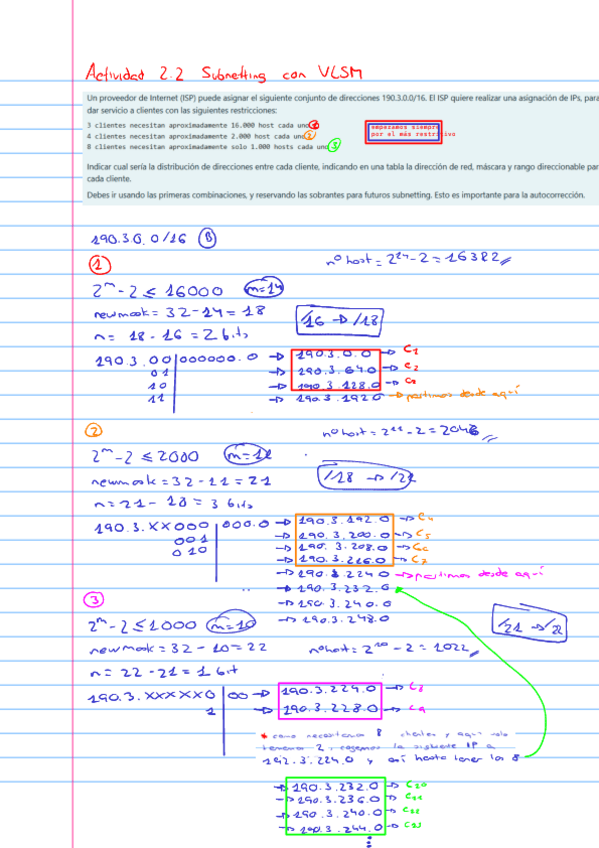 Actividad 2.2 Subnetting con VLSM
Un proveedor de Internet (ISP) puede asignar el siguiente conjunto de direcciones 190.3.0.0/16. El ISP quiere realizar una asignación de IPs, para
dar servicio a clientes con las siguientes restricciones:
3 clientes necesitan aproximadamente 16.000 host cada uno
4 clientes necesitan aproximadamente 2.000 host cada uno 2
8 clientes necesitan aproximadamente solo 1.000 hosts cada uno 3
empezamos siempre
por el más restrictivo
Indicar cual sería la distribución de direcciones entre cada cliente, indicando en una tabla la dirección de red, máscara y rango direccionable par
cada cliente.
Debes ir usando las primeras combinaciones, y reservando las sobrantes para futuros subnetting. Esto es importante para la autocorrección.
190.3.0.0/16 B
1
nº host = 2^14 - 2 = 16382
2^m - 2 ≤ 16000 m=14
newmask = 32 - 14 = 18
/16 → /18
n = 18 - 16 = 2 bits
190.3.00|000000.0 → 190.3.0.0 → C1
01 → 190.3.64.0 → C2
10 → 190.3.128.0 → C3
11 → 190.3.192.0 → partimos desde aquí
2
nº host = 2^11 - 2 = 2046
2^m - 2 ≤ 2000 m=11
newmask = 32 - 11 = 21
/18 → /21
n = 21 - 18 = 3 bits
190.3.XX000|000.0 → 190.3.192.0 → C4
001 → 190.3.200.0 → C5
010 → 190.3.208.0 → C6
→ 190.3.216.0 → C7
→ 190.3.224.0 → partimos desde aquí
→ 190.3.232.0
→ 190.3.240.0
→ 190.3.248.0
3
2^m - 2 ≤ 1000 m=10
/21 → /22
newmask = 32 - 10 = 22 nº host = 2^10 - 2 = 1022
n = 22 - 21 = 1 bit
190.3.XXXXX0|00 → 190.3.224.0 → C8
1 → 190.3.228.0 → C9
* como necesitamos 8 clientes y aquí solo
tenemos 2, cogemos la siguiente IP a
192.3.224.0 y así hasta tener los 8
→ 190.3.232.0 → C10
→ 190.3.236.0 → C11
→ 190.3.240.0 → C12
→ 190.3.244.0 → C13